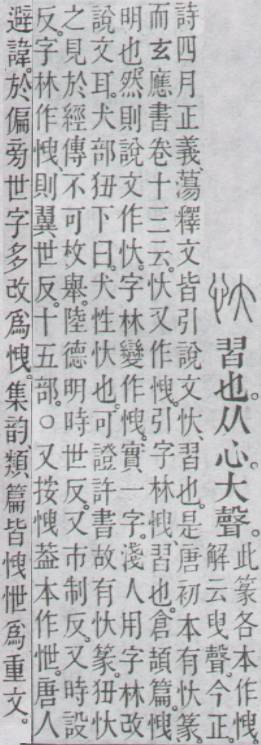 忕 習也。从心。大聲。此篆各本作𢘽
解云曳聲。今正。
詩四月正義、蕩釋文皆引說文忕、習也。是唐初本有忕篆。
而玄應書卷十三云。忕又作𢘽。引字林𢘽、習也。倉頡篇、𢘽
明也。然則說文作忕。字林變作𢘽。實一字。淺人用字林改
說文耳。犬部狃下曰。犬性忕也。可證許書故有忕篆。狃忕
之見於經傳不可枚舉。陸德明時世反。又市制反。又時設
反。字林作𢘽。則翼世反。十五部。○又按𢘽葢本作怈。唐人
避諱。於偏旁世字多改爲𢘽。集韵、類篇皆𢘽怈爲重文。